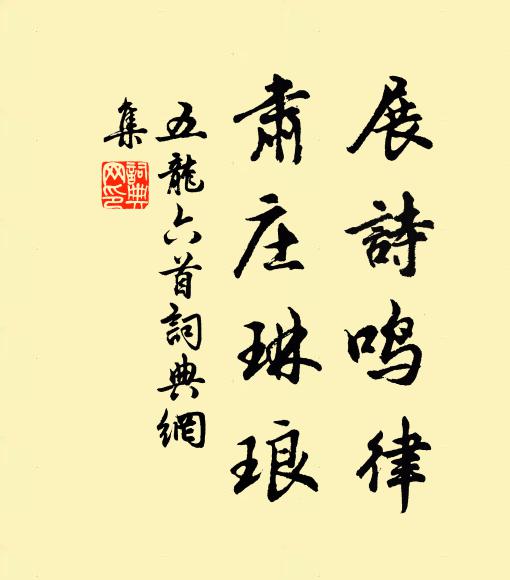 展詩鸣律
肃庄琳琅
五龍六首詞典網
集
詞典
网印